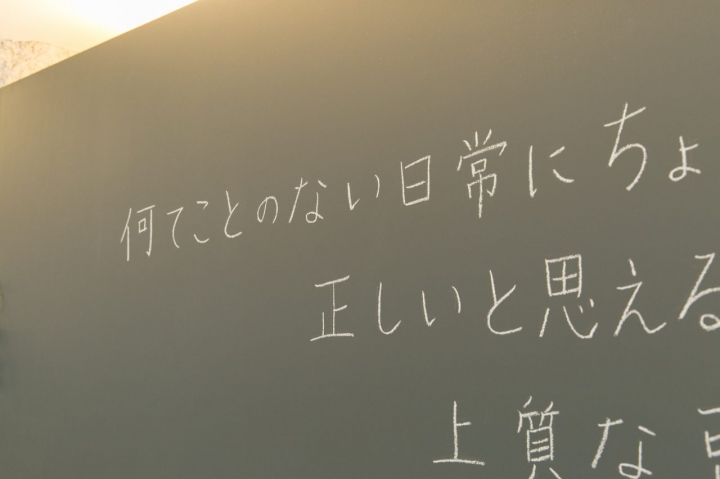 何てことのない日常にちょ
正しいと思える
上質な